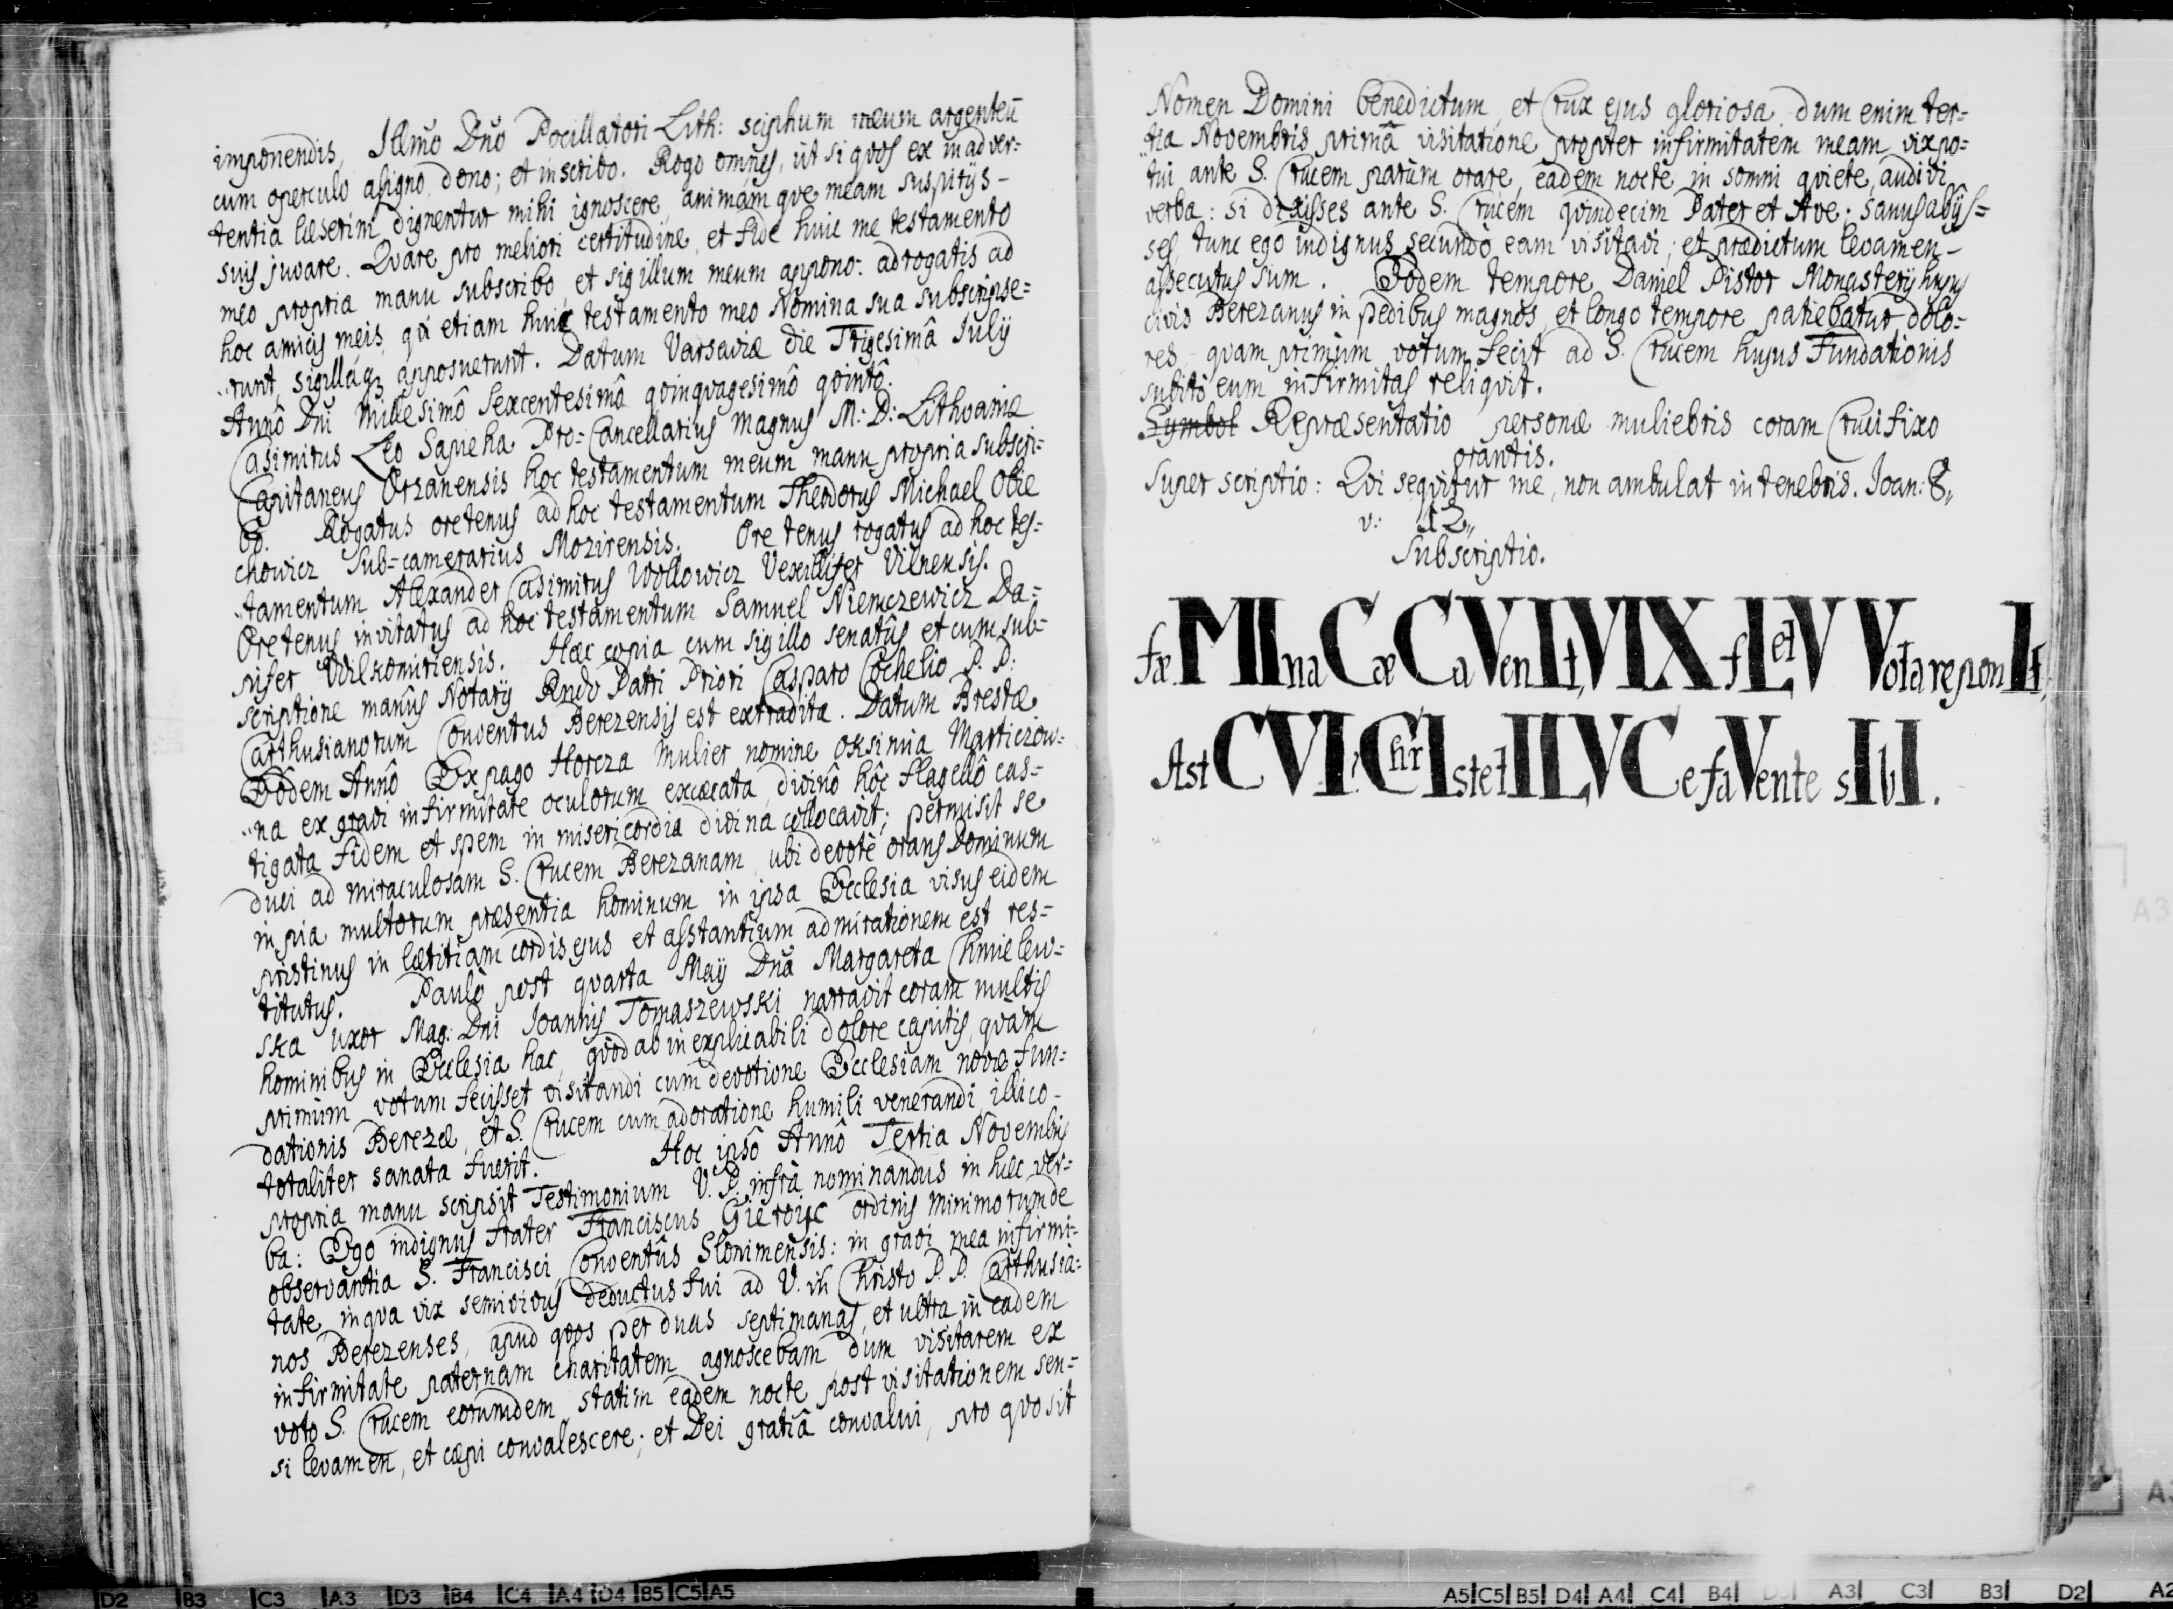 imponendis, Illmo Dno Pocillatori Lith: sciphum meum argenteū
cum operculo asigno, dono; et inscribo. Rogo omnes, ut si quos ex inadver=
tentia læserim, dignentur mihi ignoscere, animam que meam suspitijs -
suis juvare. Qvare pro meliori certitudine, et fide huic me testamento
meo propria manu subscribo, et sigillum meum appono: adrogatis ad
hoc amicis meis, qui etiam huic testamento meo Nomina sua subscripse=
runt, sigillaq3 apposuerunt. Datum Varsaviæ die Trigesimâ Julij
Annô Dni Millesimô Sexcentesimô qvinqvagesimô qvintô.
Casimirus Leo Sapieha Pro=Cancellarius Magnus M: D: Lithvaniæ
Capitaneus Orzanensis hoc testamentum meum manu propria subscri=
bo. Rogatus oretenus ad hoc testamentum Theodorus Michael Obie
chowicz Sub=camerarius Mozirensis. Ore tenus rogatus ad hoc tes=
tamentum Alexander Casimirus Wollowicz Vexillifer Vilnensis.
Oretenus invitatus ad hoc testamentum Samuel Niemczewicz Da=
pifer Wilkomiriensis. Hæc copia cum sigillo senatûs et cum sub=
scriptione manûs Notarij Rndo Patri Priori Casparo Cochelio P. P:
Carthusianorum Conventus Berezensis est extradita. Datum Brestæ
Eôdem Annô Ex pago Horcza Mulier nomine Oksimia Marticzow=
na ex gravi infirmitate oculorum excæcata, divinô hôc flagellô cas=
tigata fidem et spem in misericordia divina collocavit; permisit se
duci ad miraculosam S. Crucem Berezanam, ubi devotè orans Dominum
in pia multorum præsentia hominum in ipsa Ecclesia visus eidem
pristinus in lætitiam cordis ejus et asstantium admirationem est res=
titutus. Paulò post qvarta Maij Dna Margareta Chmielew=
ska uxor Mag: Dni Joannis Tomaszewski narravit coram multis
hominibus in Ecclesia hac, qvod ab inexplicabili dolore capitis, qvàm
primùm votum fecisset visitandi cum devotione Ecclesiam novæ fun=
dationis Berezæ, et S. Crucem cum adoratione humili venerandi, illico -
totaliter sanata fuerit. Hoc ipsô Annô Tertia Novembris
propria manu scripsit Testimonium V. P. infrà nominandus in hæc ver=
ba: Ego indignus frater Franciscus Gieroijc ordinis Minimorum de
observantia S. Francisci, Conventûs Slonimensis: in gravi mea infirmi=
tate, in qva vix semivivus deductus fui ad V. in Christo P. P. Carthusia=
nos Berezenses, apud qvos per duas septimanas, et ultra in eadem
infirmitate paternam charitatem agnoscebam, dum visitarem ex
voto S. Crucem eorumdem, statim eadem nocte post visitationem sen=
si levamen, et cœpi convalescere; et Dei gratiâ convalui, pro quo sit
Nomen Domini benedictum, et Crux ejus gloriosa. dum enim ter=
tia Novembris primâ visitatione propter infirmitatem meam vix po=
tui ante S. Crucem parùm orare, eadem nocte in somni qviete, audivi
verba: si dixisses ante S. Crucem qvindecim Pater et Ave; sanus abijs=
ses, tunc ego indignus secundò eam visitavi; et prædictum levamen -
assecutus sum. Eodem tempore Daniel Pistor Monasterij hujus
civis Berezanus in pedibus magnos, et longo tempore patiebatur dolo=
res, quam primùm votum fecit ad S. Crucem hujus Fundationis
subitò eum infirmitas reliqvit.
Symbol Repræsentatio personæ muliebris coram Crucifixo
orantis.
Super scriptio: Qvi seqvitur me, non ambulat in tenebris. Joan: 8,,
v: 12,,
Subscriptio.
fæMIna CæCa VenIt, VIX fLet V Vota reponIt;
Ast CVI, ChrIste tIILVCe faVente sIbI.